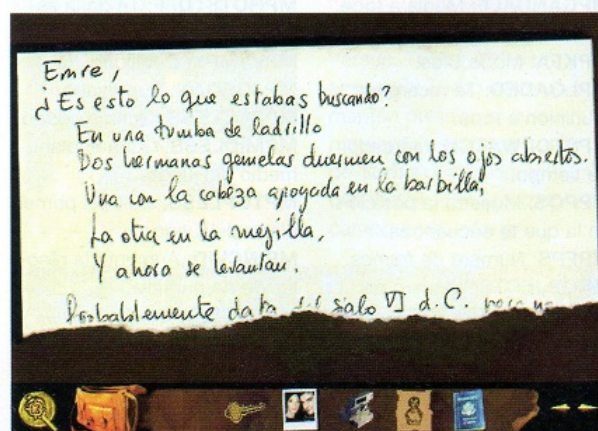 Emre,
¿Es esto lo que estabas buscando?
En una tumba de ladrillo
Dos hermanas gemelas duermen con los ojos abiertos.
Una con la cabeza apoyada en la barbilla,
La otra en la mejilla,
Y ahora se levantan.
Probablemente data del siglo VI d.C.